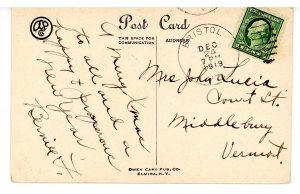 Post Card
THIS SPACE FOR
COMMUNICATION
ADDRESS
BRISTOL
DEC
24
7 PM
1919
A Merry Xmas
to all and a
Happy & Prosperous
New Year
Mrs John Lucia
Court St.
Middlebury
Vermont.
OWEN CARD PUB. CO.
ELMIRA, N.Y.